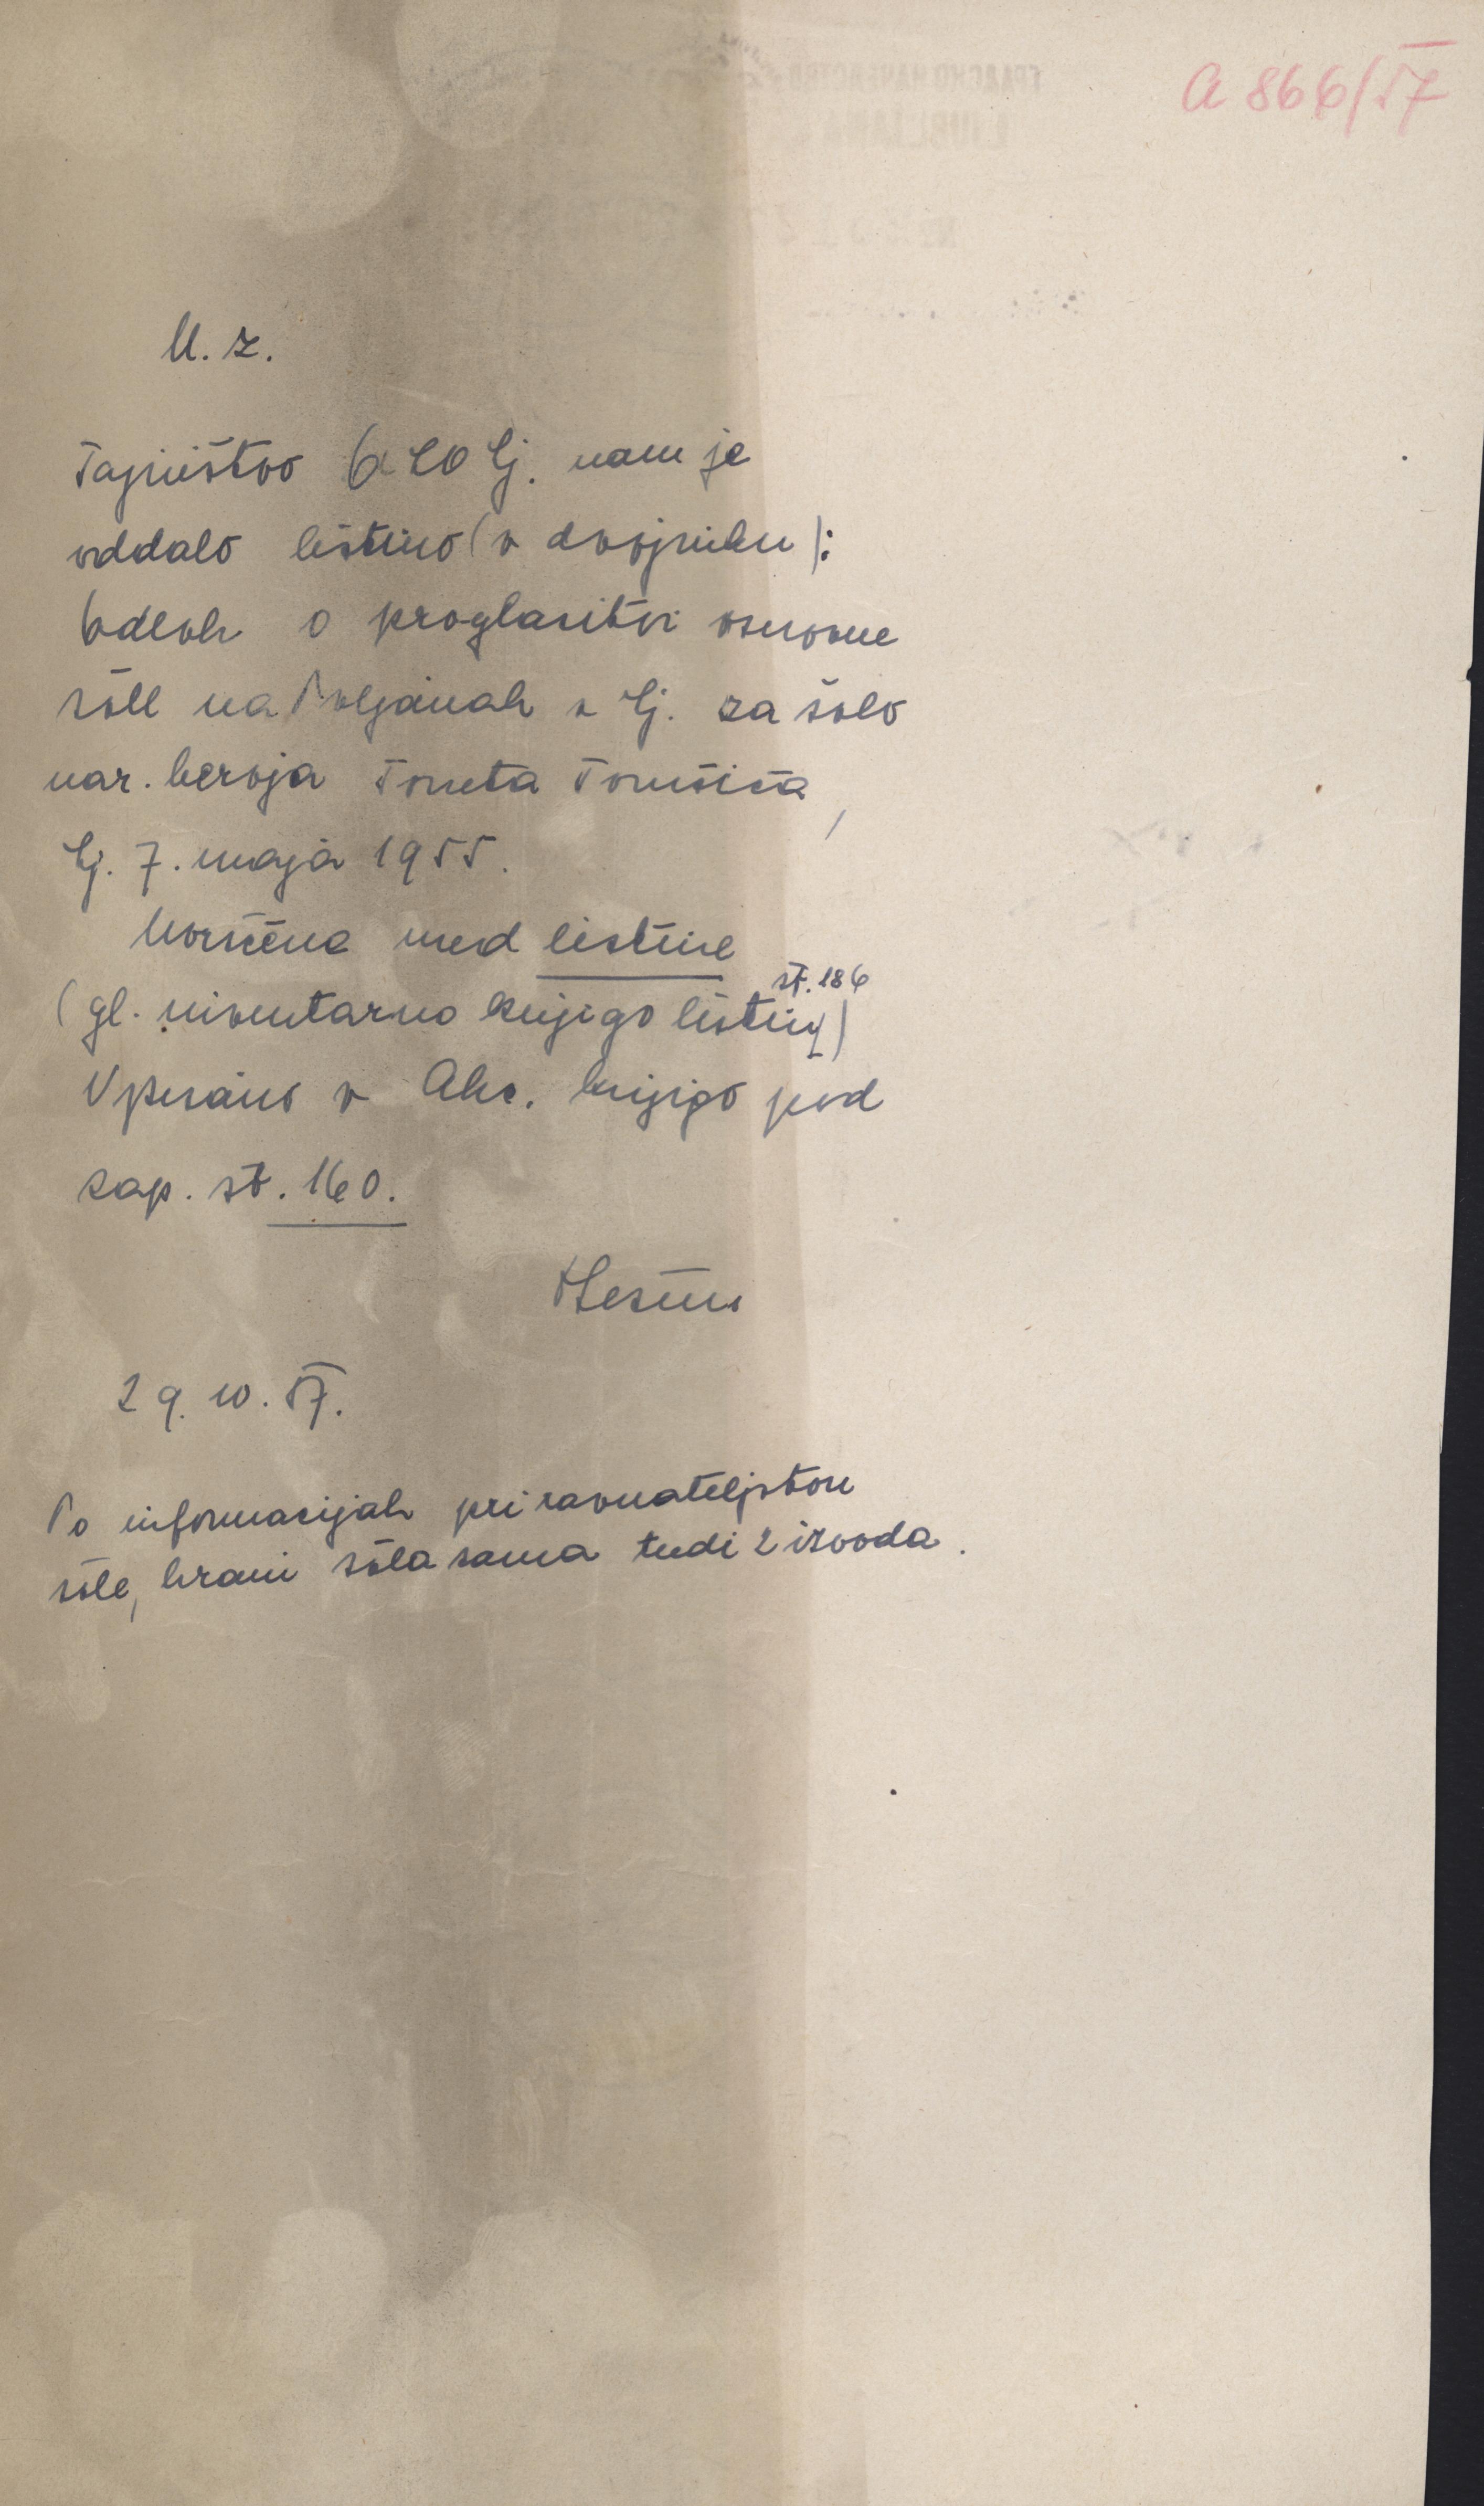 A 866/57
U. z.
Tajništvo OLO Lj. nam je
oddalo listino (v dvojniku):
Odlok o proglasitvi osnovne
šole na Poljanah v Lj. za šolo
nar. heroja Toneta Tomšiča,
Lj. 7. maja 1955.
Uvrščena med listine
št. 186
(gl. inventarno knjigo listin)
Vpisano v Akc. knjigo pod
zap. št. 160.
29. 10. 57.
Po informacijah pri ravnateljstvu
šole, hrani šola sama tudi 2 izvoda.